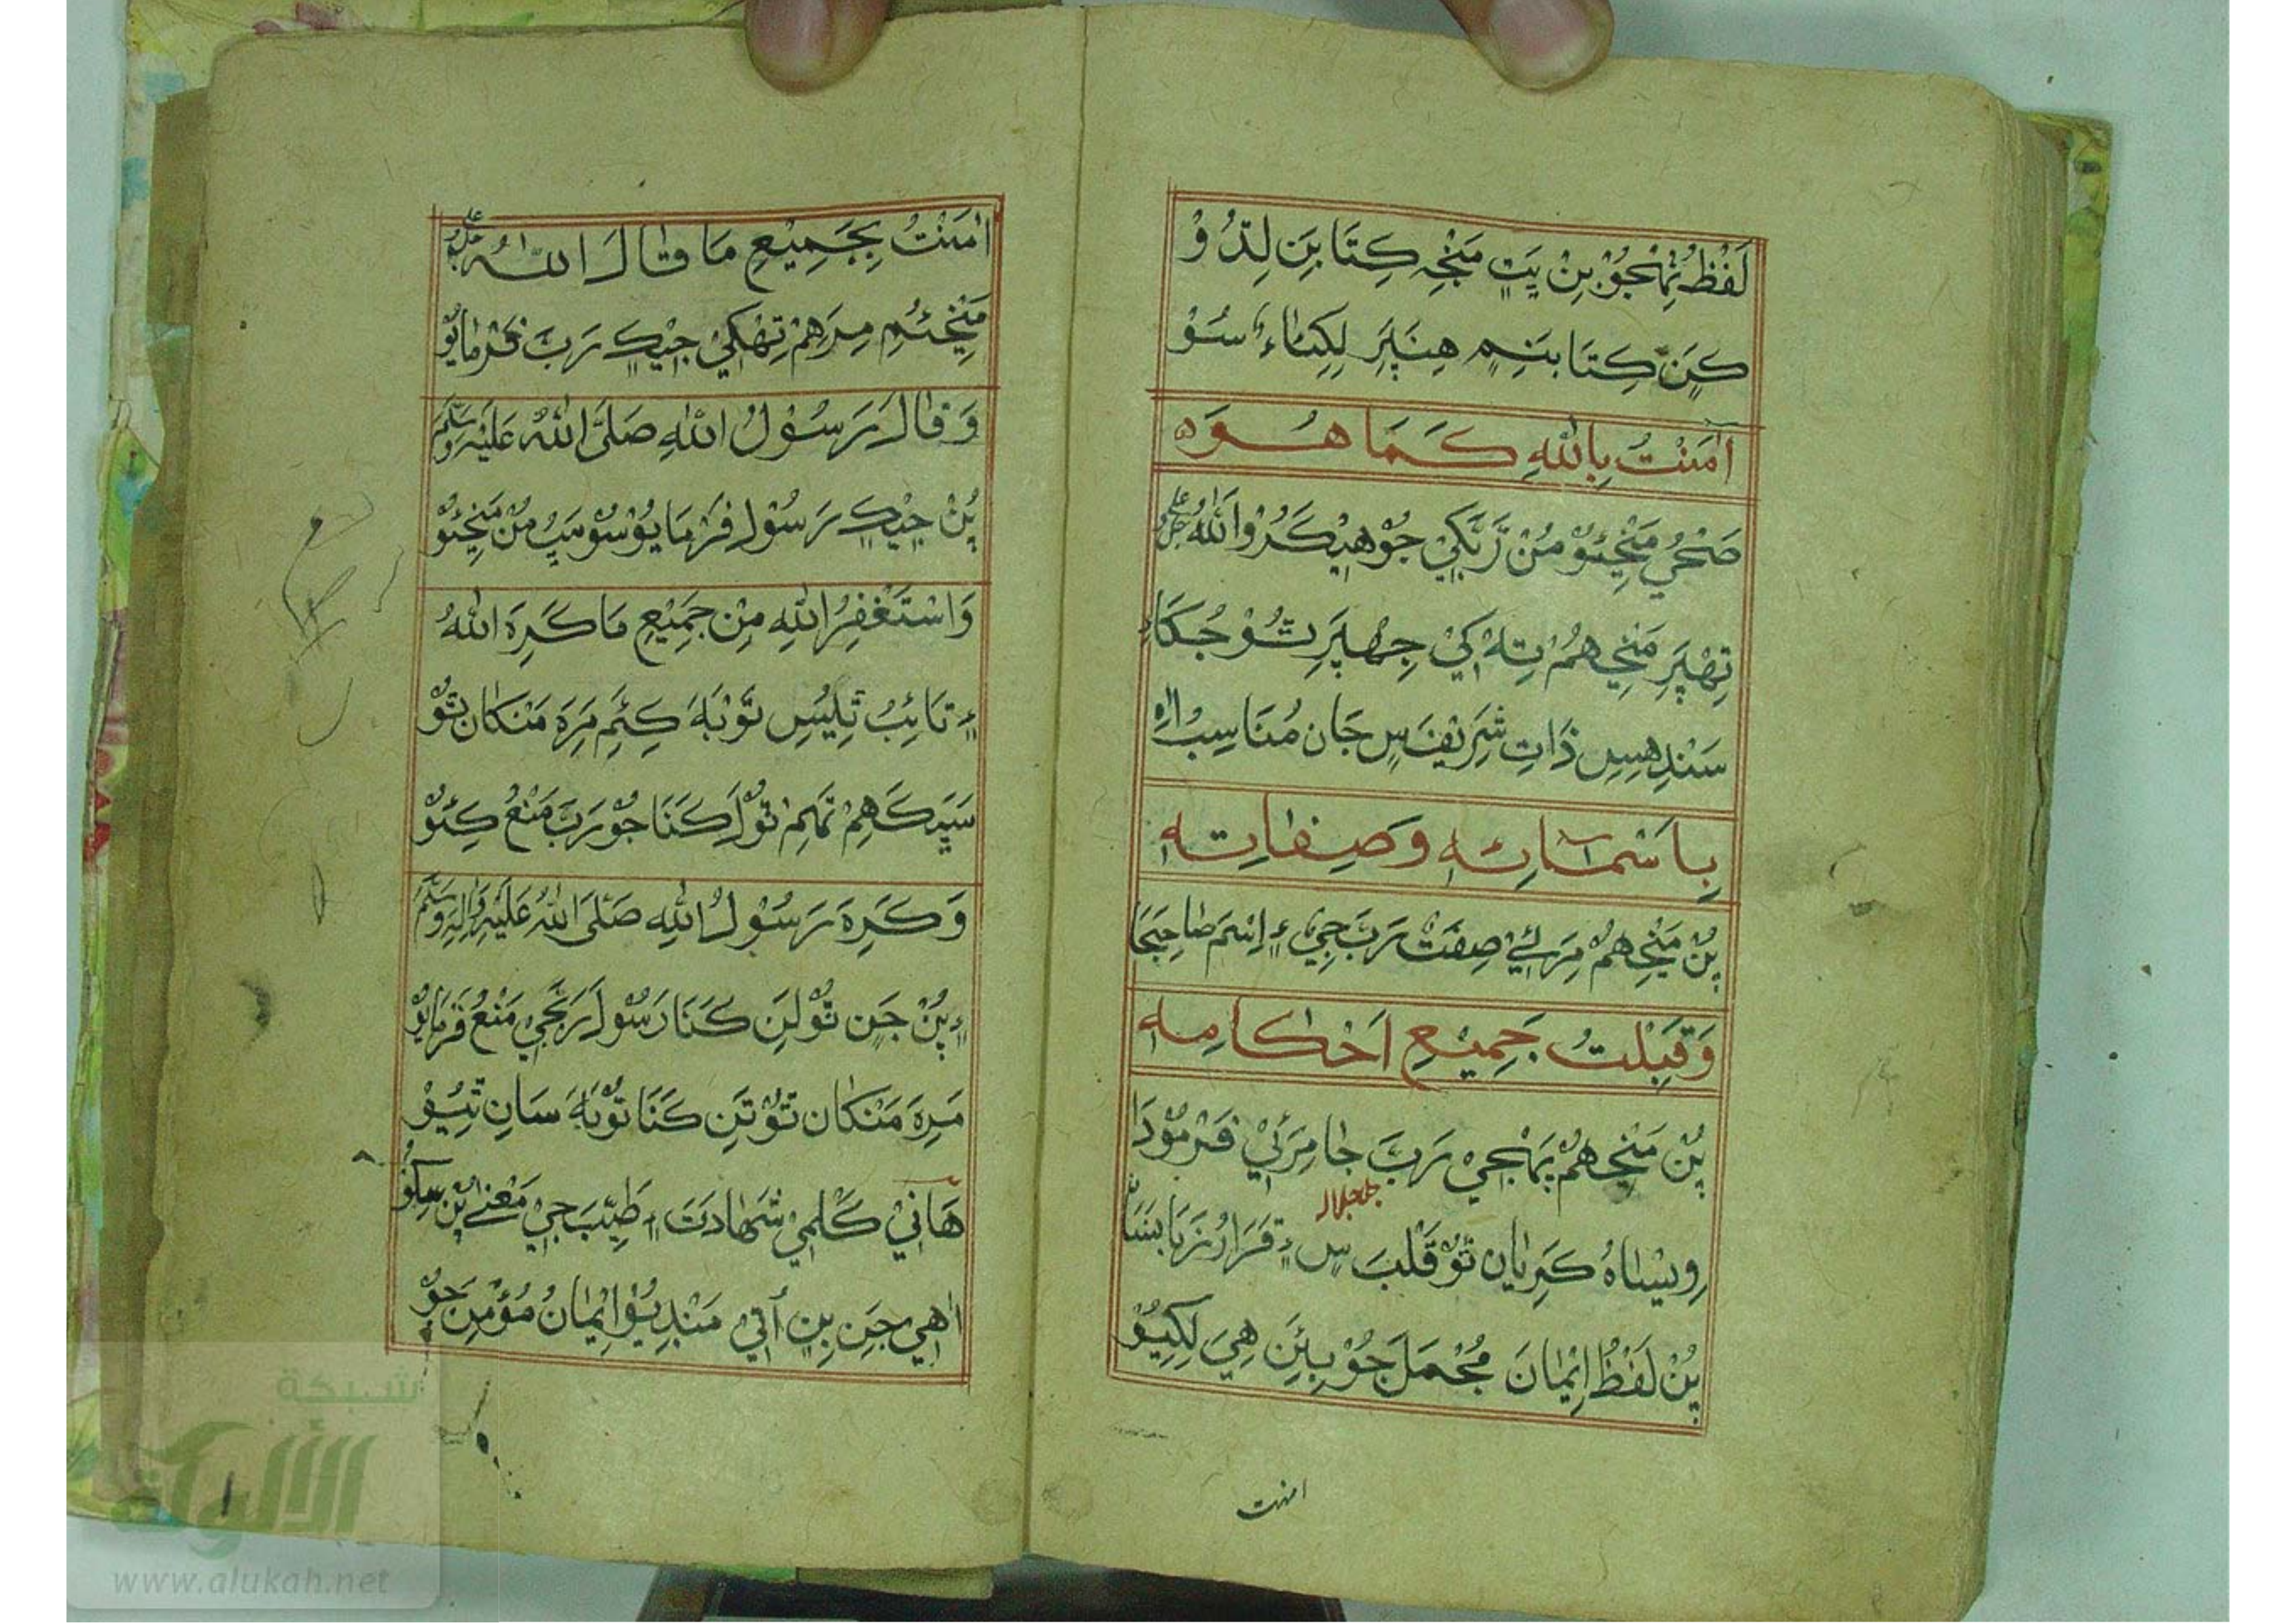 لَفْظُ تِہْجُوْن بِنْ پَتِ مَنْجِہ كِتَابَنِ لِڌُوْ
كَن كِتَابَنِم هِنَپَرِ لِكِيَاءُ سُوْ
اٰمَنْتُ بِاللّٰهِ كَمَا هُوَ
صَحِي مَنْجِئو مُنْ رَّبَكِي جُوْ هِيْكَرُوْ اللّٰهُ
تِهْپَرِ مَنْجِي هُمْ تِہ كِي جِهْپَرِ تُوْ جُكَاءِ
سَنْدِهِسِ ذَاتِ شَرِيْفَ سِ جَان مُنَاسِبُ اٰهِ
بِاَسْمَائِهٖ وَصِفَاتِهٖ
پُنْ مَنْجِ هُمْ مِرَئِي صِفَتْ رَبَّ جِي ءٍ اِسْمَ صَاحِبَجَا
وَقَبِلْتُ جَمِيْعِ اَحْكَامِهٖ
پُنْ مَنْجِ هُمْ پَہْجِي رَبَّ جَا مِرَئِي فَرْمُوْدَا
جل جلاله
وِيْسَاهُ كَرِيَان تُوْ قَلْبَ سِ ءٍ قَرَارُ زَبَانَسَا
پُنْ لَفْظُ اِيْمَانَ مُجْمَلَ جُوْ بِئَنِ هِيَ لِكِيُوْ
امنت
اٰمَنْتُ بِجَمِيْعِ مَا قَالَ اللّٰهُ
مَنْجِئُمِ مِرَهِمْ تِهْكِي جِيْكِ رَبَّ فَرْمَايُوْ
وَقَالَ رَسُوْلُ اللّٰهِ صَلَّى اللّٰهُ عَلَيْهِ وَسَلَّمَ
پُنْ جِيْكِ رَسُوْلِ فَرْمَايُوْ سُوْ سَپُ مُنْ مَنْجِئو
وَاسْتَغْفِرُ اللّٰهِ مِنْ جَمِيْعِ مَا كَرِهَ اللّٰهُ
ءٍ تَائِبُ ٿِيُسِ تَوْبَهَ كِئَمِ مَرَهَ مَنْكَان تُوْ
سَپَكَهِمْ تَهِمْ تُوْلَ كَنَا جُوْ رَبَّ مَنْعُ كِئُوْ
وَكَرِهَ رَسُوْلُ اللّٰهِ صَلَّى اللّٰهُ عَلَيْهِ وَاٰلِهٖ وَسَلَّمَ
ءٍ پُنْ جَن تُوْلَنِ كَنَا رَسُوْلَ رَبَّجِي مَنْعُ فَرْمَايُوْ
مَرَهَ مَنْكَان تُوْ تَنِ كَنَا تَوْبَهَ سَان ٿِيُوْ
هَاٰنِي كَلْمِي شَهَادَتَ ءٍ طَيِّبَ جِي مَعْنٰى پُن سِكُو
اٰهِي جَنِ بِنِ اُتِي مَنْڊِيُوْ اِيْمَانُ مُؤْمِنَ جُوْ
شبكة
الألوكة
www.alukah.net